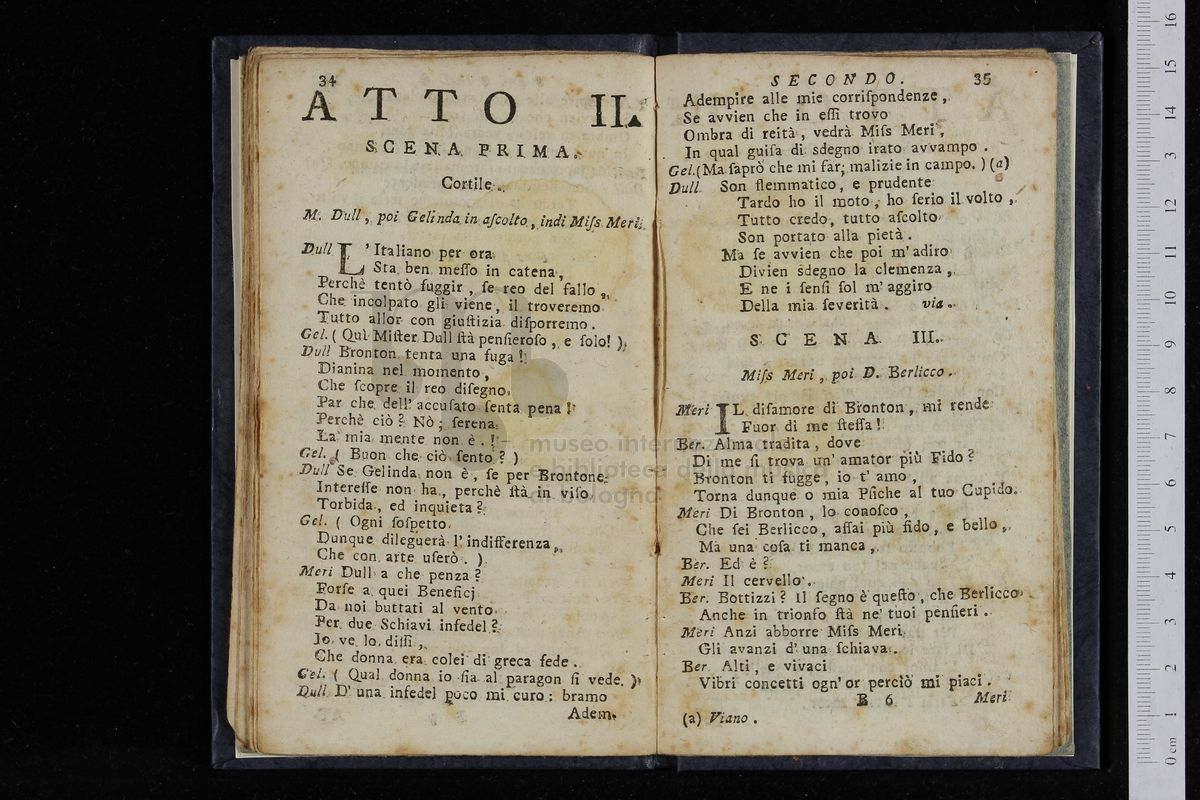 34
ATTO II.
SCENA PRIMA.
Cortile.
M. Dull, poi Gelinda in aſcolto, indi Miſs Meri.
Dull L'Italiano per ora
Sta ben meſſo in catena,
Perchè tentò fuggir, ſe reo del fallo,
Che incolpato gli viene, il troveremo
Tutto allor con giuſtizia diſporremo.
Gel. ( Quì Miſter Dull ſtà penſieroſo, e ſolo! )
Dull Bronton tenta una fuga!
Dianina nel momento,
Che ſcopre il reo diſegno,
Par che dell' accuſato ſenta pena!
Perchè ciò? Nò; ſerena
La mia mente non è.!
Gel. ( Buon che ciò ſento? )
Dull Se Gelinda non è, ſe per Brontone
Intereſſe non ha, perchè ſtà in viſo
Torbida, ed inquieta?
Gel. ( Ogni ſoſpetto
Dunque dileguerà l' indifferenza,
Che con arte uſerò. )
Meri Dull a che penza?
Forſe a quei Beneficj
Da noi buttati al vento
Per due Schiavi infedel?
Io ve lo diſſi,
Che donna era colei di greca fede.
Gel. ( Qual donna io ſia al paragon ſi vede. )
Dull D' una infedel poco mi curo: bramo
Adem.
SECONDO. 35
Adempire alle mie corriſpondenze,
Se avvien che in eſſi trovo
Ombra di reità, vedrà Miſs Meri,
In qual guiſa di sdegno irato avvampo.
Gel. (Ma ſaprò che mi far; malizie in campo.) (a)
Dull Son flemmatico, e prudente
Tardo ho il moto, ho ſerio il volto,
Tutto credo, tutto aſcolto
Son portato alla pietà.
Ma ſe avvien che poi m' adiro
Divien sdegno la clemenza,
E ne i ſenſi ſol m' aggiro
Della mia ſeverità. via.
SCENA III.
Miſs Meri, poi D. Berlicco.
Meri IL diſamore di Bronton, mi rende
Fuor di me ſteſſa!
Ber. Alma tradita, dove
Di me ſi trova un' amator più Fido?
Bronton ti fugge, io t' amo,
Torna dunque o mia Pſiche al tuo Cupido.
Meri Di Bronton, lo conoſco,
Che ſei Berlicco, aſſai più fido, e bello,
Mà una coſa ti manca,
Ber. Ed è?
Meri Il cervello.
Ber. Bottizzi? il ſegno è queſto, che Berlicco
Anche in trionfo ſtà ne' tuoi penſieri.
Meri Anzi abborre Miſs Meri
Gli avanzi d' una ſchiava.
Ber. Alti, e vivaci
Vibri concetti ogn' or perciò mi piaci.
B 6 Meri
(a) Viano.
museo internazionale
e biblioteca della musica
di bologna